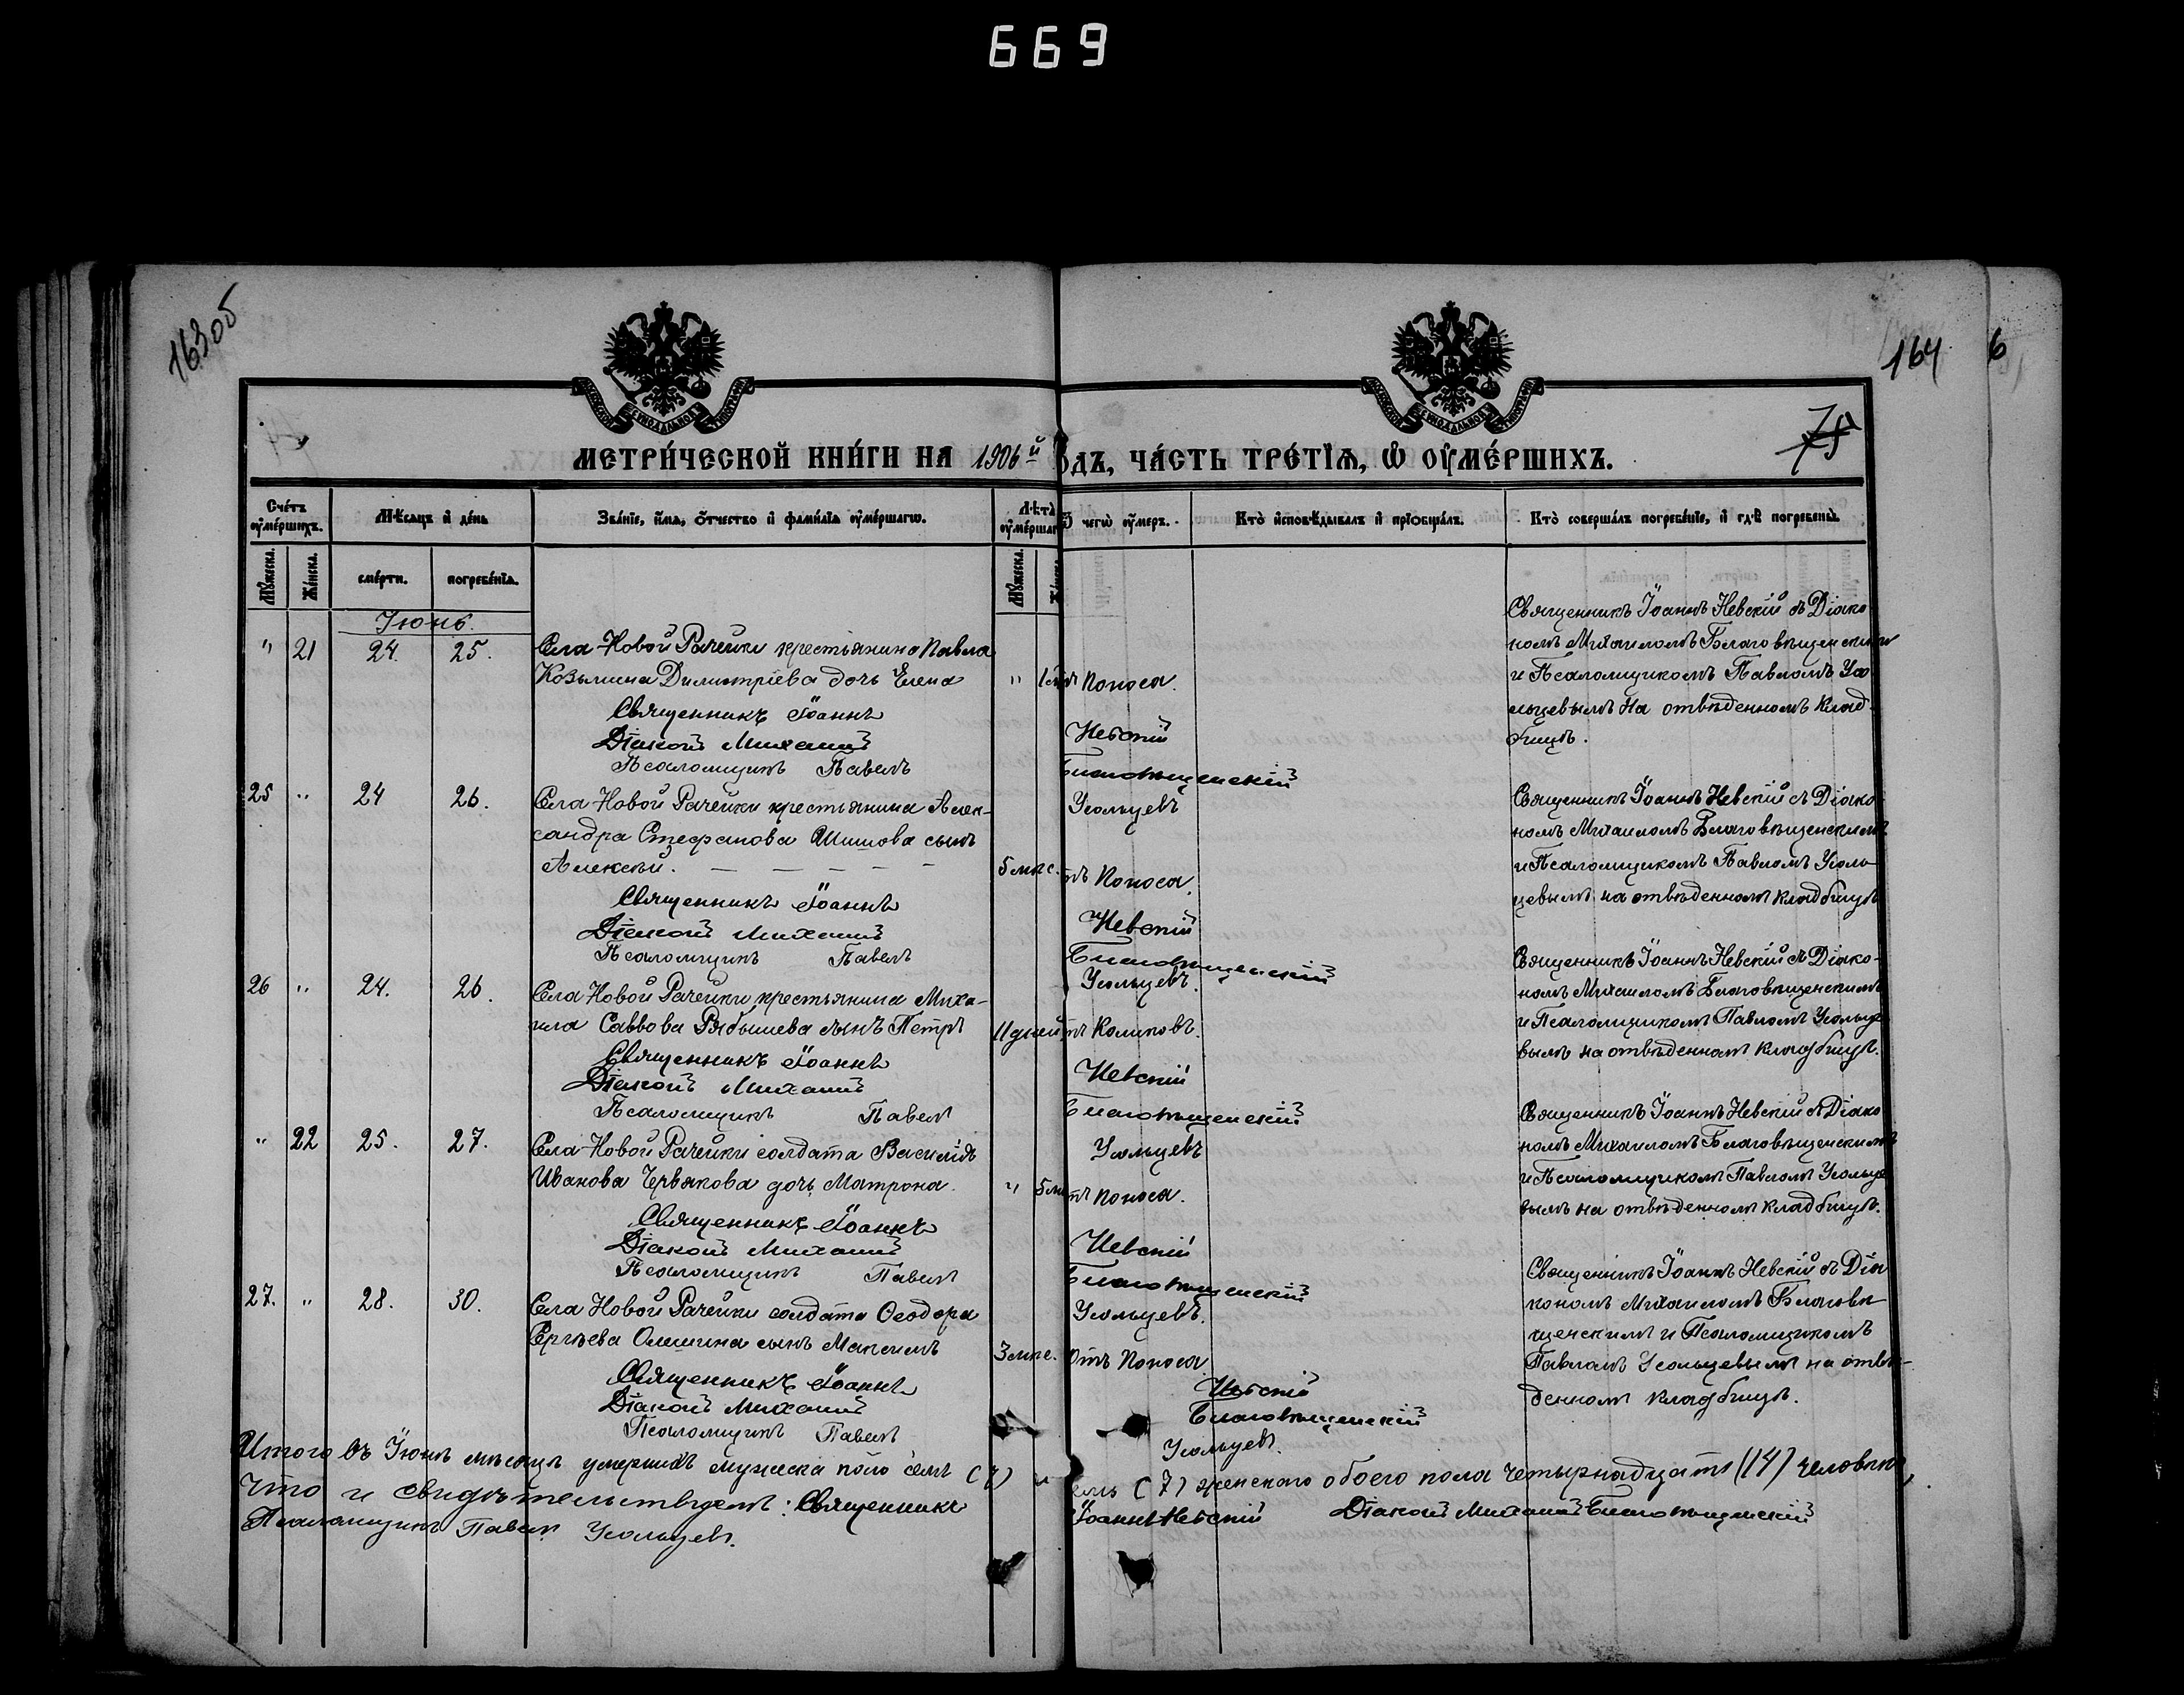 669
163об
164
6
75
МЕТРИ́ЧЕСКОЙ КНИ́ГИ НА 1906й
ОДЪ, ЧА́СТЬ ТРЕ́ТІѦ, Ѡ ОУМЕ́РШИХЪ.
Сче́тъ оумершихъ.
Мѣсяцъ и де́нь
Зва́ніе, и́мя, о́тчество и фами́лія оуме́ршагѡ.
Лѣтъ оуме́ршаг
Ѿ чегѡ оумеръ.
Кто̀ исповѣдывалъ и пріѡбщалъ.
Кто̀ соверша́лъ погребе́ніе, и гдѣ погребены̀.
Мꙋжеска.
Же́нска.
сме́рти.
погребе́нія.
Мꙋжеска.
Іюнь.
" 21 24. 25. Села Новой Рачейки крестьянина Павла
Козьмина Димитріева дочь Елена " поноса.
Священникъ Іоаннъ Невскій
Діаконъ Михаилъ Благовѣщенскій
Псаломщикъ Павелъ Усольцевъ
Священникъ Іоаннъ Невскій съ Діако
номъ Михаиломъ Благовѣщенскимъ
и Псаломщикомъ Павломъ Усо
льцевымъ на отвѣденномъ клад
бищѣ.
25 " 24 26. Села Новой Рачейки крестьянина Алек-
сандра Стефанова Шишова сынъ
Алексѣй. — — — — 5 мѣс. тъ поноса.
Священникъ Іоаннъ Невскій
Діаконъ Михаилъ Благовѣщенскій
Псаломщикъ Павелъ Усольцевъ.
Священникъ Іоаннъ Невскій съ Діако-
номъ Михаиломъ Благовѣщенскимъ
и Псаломщикомъ Павломъ Усоль
цевымъ на отвѣденномъ кладбищѣ
26 " 24. 26. Села Новой Рачейки крестьянина Миха-
ила Саввова Рябышева сынъ Петръ 11 дней тъ Коликовъ.
Священникъ Іоаннъ Невскій
Діаконъ Михаилъ Благовѣщенскій
Псаломщикъ Павелъ Усольцевъ
Священникъ Іоаннъ Невскій съ Діако-
номъ Михаиломъ Благовѣщенскимъ
и Псаломщикомъ Павломъ Усольце
вымъ на отвѣденномъ кладбищѣ.
" 22 25. 27. Села Новой Рачейки солдата Василія
Иванова Червякова дочь Матрона. " 5 м тъ поноса.
Священникъ Іоаннъ Невскій
Діаконъ Михаилъ Благовѣщенскій
Псаломщикъ Павелъ Усольцевъ.
Священникъ Іоаннъ Невскій съ Діако
номъ Михаиломъ Благовѣщенскимъ
и Псаломщикомъ Павломъ Усольце
вымъ на отвѣденномъ кладбищѣ.
27. " 28. 30. Села Новой Рачейки солдата Ѳеодора
Сергѣева Олешина сынъ Максимъ 3 мѣс. Отъ поноса
Священникъ Іоаннъ Невскій
Діаконъ Михаилъ Благовѣщенскій
Псаломщикъ Павелъ Усольцевъ.
Священникъ Іоаннъ Невскій съ Діа
кономъ Михаиломъ Благовѣ
щенскимъ и Псаломщикомъ
Павломъ Усольцевымъ на отвѣ-
денномъ кладбищѣ.
Итого въ Іюнѣ мѣсяцѣ умершихъ мужеска поло семь (7) и емь (7) женскаго обоего пола четырнадцать (14) человѣкъ,
что и свидѣтельствуемъ: Священникъ Іоаннъ Невскій Діаконъ Михаилъ Благовѣщенскій
Псаломщикъ Павелъ Усольцевъ.